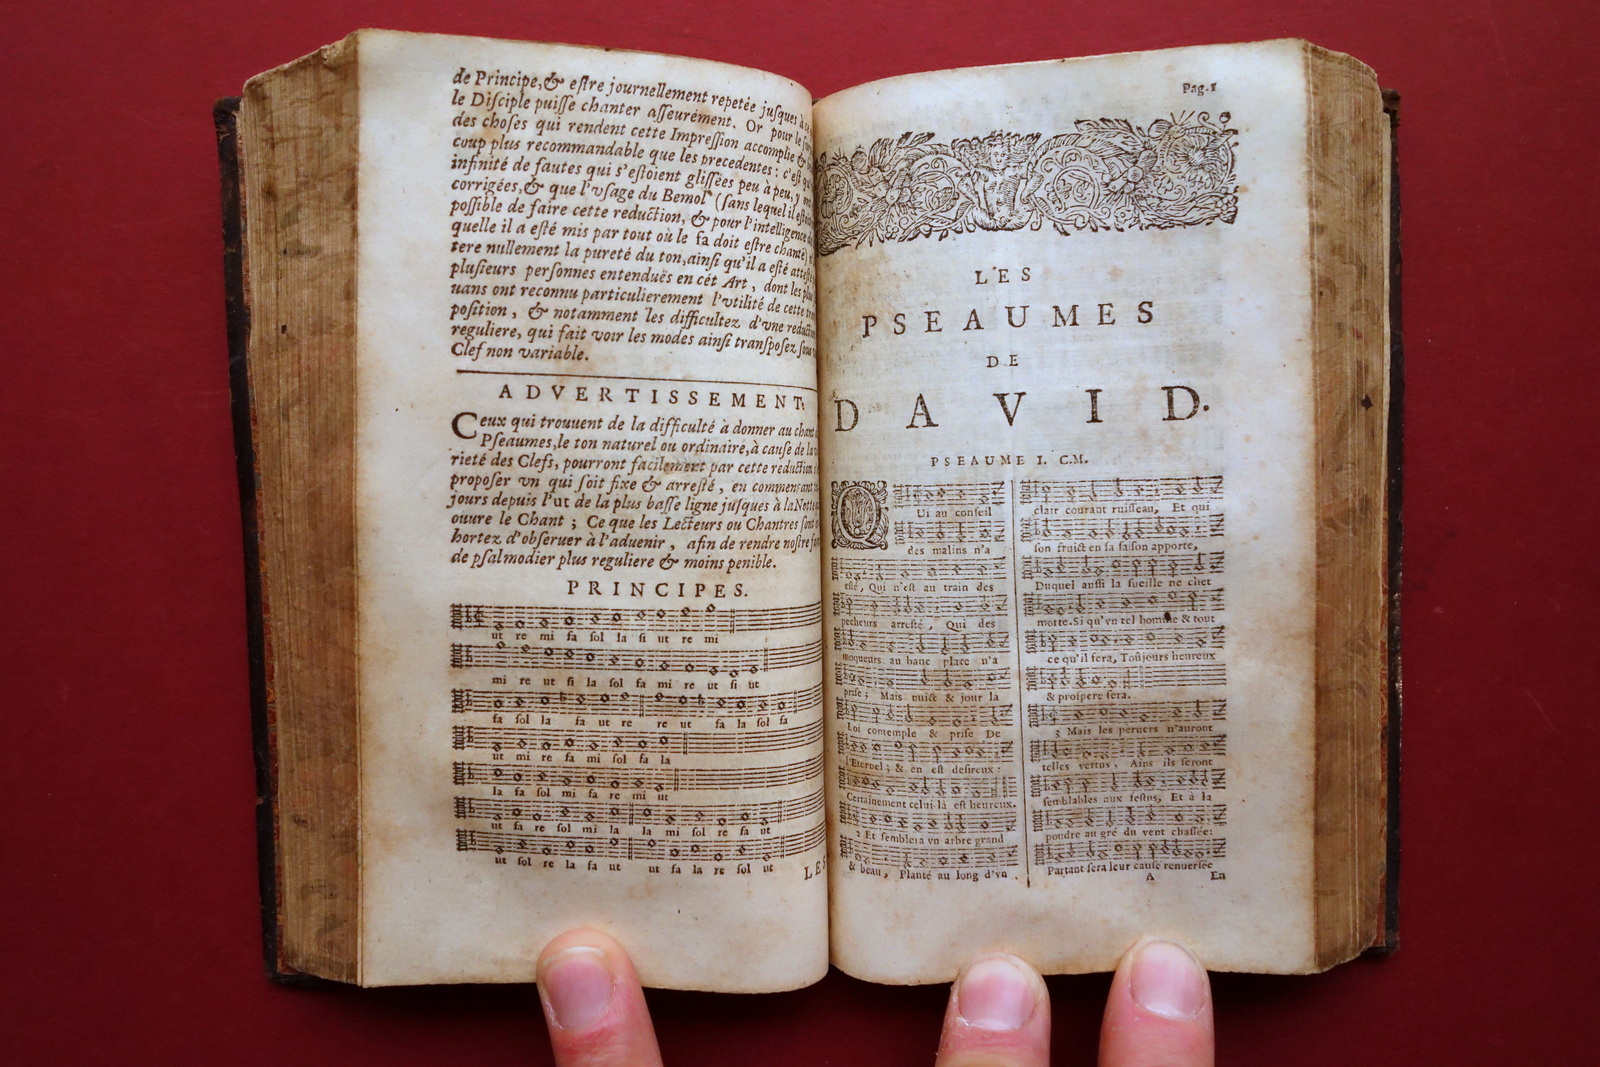 de Principe, & estre journellement repetée jusques à ce
le Disciple puisse chanter asseurément. Or pour le
des choses qui rendent cette Impression accomplie &
coup plus recommandable que les precedentes: c'est
infinité de fautes qui s'estoient glissées peu à peu, y
corrigées, & que l'vsage du Bemol (sans lequel il
possible de faire cette reduction, & pour l'intelligence
quelle il a esté mis par tout où le fa doit estre chanté)
tere nullement la pureté du ton, ainsi qu'il a esté
plusieurs personnes entenduës en cét Art, dont les
uans ont reconnu particulierement l'vtilité de cette
position, & notamment les difficultez d'vne
reguliere, qui fait voir les modes ainsi transposez
Clef non variable.
ADVERTISSEMENT.
Ceux qui trouuent de la difficulté à donner au
Pseaumes, le ton naturel ou ordinaire, à cause de la
rieté des Clefs, pourront facilement par cette reduction
proposer vn qui soit fixe & arresté, en commençant
jours depuis l'ut de la plus basse ligne jusques à la Notte
ouure le Chant; Ce que les Lecteurs ou Chantres sont
hortez d'obseruer à l'aduenir, afin de rendre nostre
de psalmodier plus reguliere & moins penible.
PRINCIPES.
ut re mi fa sol la si ut re mi
mi re ut si la sol fa mi re ut si ut
fa sol la fa ut re re ut fa la sol fa
ut mi re fa mi sol fa la
la fa sol mi fa re mi ut
ut fa re sol mi la la mi sol re fa ut
ut sol re la fa ut ut fa la re sol ut
LES
Pag. 1
LES
PSEAUMES
DE
DAVID.
PSEAUME I. C.M.
Qui au conseil
des malins n'a
esté, Qui n'est au train des
pecheurs arresté, Qui des
moqueurs au banc place n'a
prise; Mais nuict & jour la
Loi contemple & prise De
l'Eternel; & en est desireux:
Certainement celui-là est heureux.
2 Et semblera vn arbre grand
& beau, Planté au long d'vn
clair courant ruisseau, Et qui
son fruict en sa saison apporte,
Duquel aussi la fueille ne chet
morte. Si qu'vn tel homme & tout
ce qu'il fera, Toûjours heureux
& prospere sera.
3 Mais les peruers n'auront
telles vertus, Ains ils seront
semblables aux festus, Et à la
poudre au gré du vent chassée:
Partant sera leur cause renuersée
A En